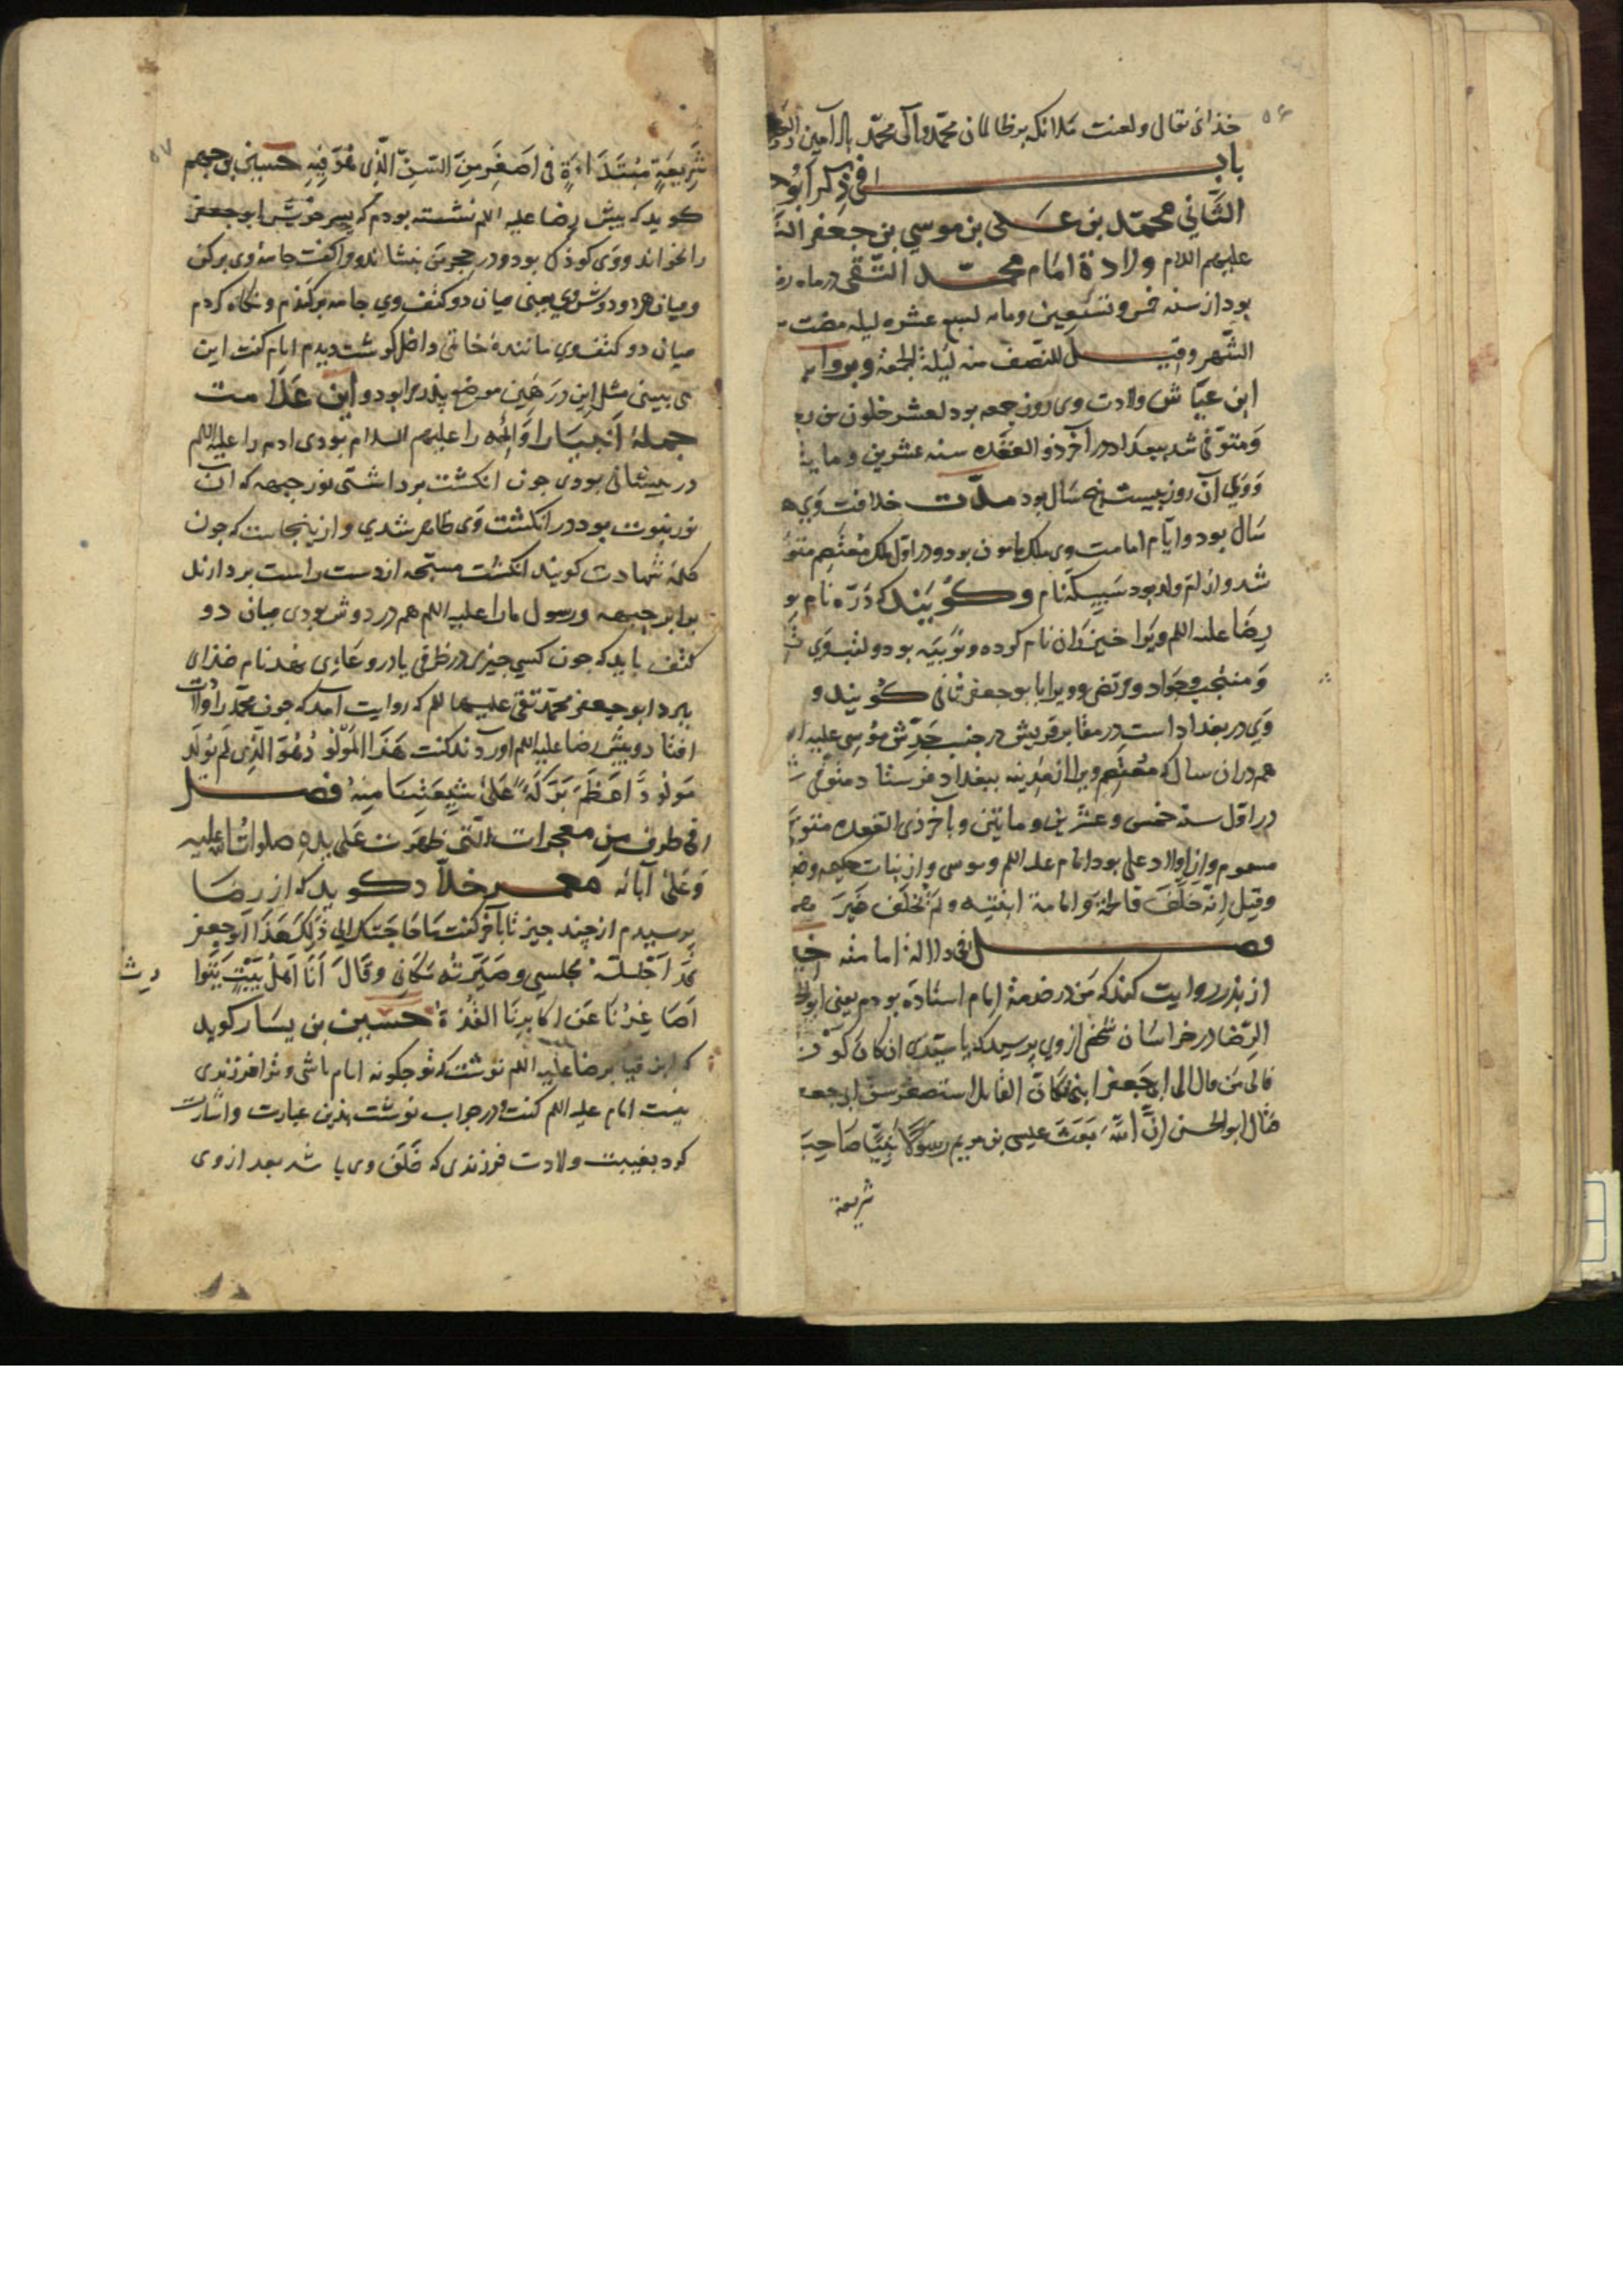 ۵۶
خذای تعالی ولعنت ملائکه بر ظالمان محمد وآل محمد باد آمین
باب فی ذکر ابو
الثَّانی محمّد بن عَلی بن موسی بن جَعفر
علیهم اللام ولادة امَام محمّد التّقی در ماه
بود از سنه خمس وتسعین ومایه لسبع عشره لیله مضت
الشّهر وقیل للنّصف منه لَیلة الجمعة وبروایه
ابن عیّاش ولادت وی روز جمعه بود لعشر خلون من
وَمتوَفّی شد ببغداد در آخر ذو القعده سنه عشرین وما
وَوَی آن روز بیست پنج سَال بود مدّت خلافت وَی
سَال بود وایّام امامت وی ملک مامون بود ودر اوّل ملک مُعْتَصِم
شد واز ام ولد بود سَبیکه نام وکوُیَند که دُرّه نام
رضَا علیه اللم ویرا خیزرَان نام کرده ونوُبیَّه بود ولقب وَی
وَمنتجب وجَواد ومرتضی وویرا ابو جعفر ثانی کُویند و
وَی در بغداد است در مقابر قریش در جنب جَدِّش مُوسِی علیه
هم دران سال که مُعْتَصِم ویرا از مَدینه ببغداد فرستاد متوفی
در اوّل سنة خمس وعشرین ومایتین وبآخر ذی القعده
مسموم واز اولاد علی بود امام علیه اللم وموسی واز بنات حکیمه
وقیل اِنّه خَلَّفَ فاطمَة وَامامة ابنتیه ولَم یُخَلِّف غَیرَ
فصل فی دلالة امامته
از پدر روایت کند که مَن در خدمة اِمام استَادَه بودم یعنی
الرِّضا در خراسَان شخصی از وی پرسید که یا سیّدی ان کان کَون
فالی مَن قال الی ابی جَعفر ابنی فکانّ القایل استصغر سنّ ابی جعفر
فقال ابو الحسن اِنَّ اللّهَ بَعَثَ عیسی بن مریم رسوُلًا نَبِیًّا صَاحِبَ
شریعة
۵۷
شَرِیعَةٍ مُبْتَدَاءَةٍ فی اَصْغَرِ مِنَ السِّنِّ الَّذِی هُوَ فِیهِ حسین بن جهم
کوید که پیش رضا علیه اللم نشسته بودم که پسر خویش ابو جعفر
را بخواند ووَی کوذک بود ودر حجر من بنشاند وکفت جامه وی برکن
ومیان هر دو دوش وی یعنی میان دو کتف وی جامه برکندم ونکاه کردم
میان دو کتف وی مانندهٔ خاتمی داخل کوشت دیدم امام کفت این
می بینی مثل این در همین موضع پذر مرا بود واین عَلامت
جملهٔ انبیَا را وَائمّه را علیهم السلام بودی ادم را علیه اللم
در پیشانی بودی جون انکشت برداشتی نور جبهه که ان
نور نبوت بود در انکشت وَی ظاهر شدی واز ینجاست که جون
کلمهٔ شهادت کویند انکشت مسبّحه از دست راست بردارند
برابر جبهه ورسول ما را علیه اللم هم در دوش بودی میان دو
کتف باید که جون کسی جیزی در ظرفی یا در وعَائی نهد نام خذای
ببرد ابو جعفر محمّد تقی علیهما للم که روایت آمد که جون محمّد را ولادت
افتاد وپیش رضا علیه اللم اوردند کفت هَذَا المَوْلوُدُ هُوَ الَّذِی لَم یُولَد
مَولُودٌ اَعْظَمَ بَرَکَةً عَلیٰ شِیعَتِنَا مِنْهُ فصل
فی طرف مِن معجزات الّتی ظهَرَت عَلی یدِهِ صلواتُ اللّٰه علیه
وَعَلیٰ آبائه معمر خلاّد کوید که از رضَا
پرسیدم از چند جیز تا بآخر کفت مَا حَاجَتک الی ذٰلِک هَذَا اَبوُ جعفر
قَد اَجْلَستُهُ مجلِسی وصَیَّرتُه مَکَانِی وقَالَ اَنَا اَهْلُ بَیْتٍ یَتَوَا
رث
اَصَاغِرُنَا عَن اکَابِرِنَا القُذّةُ حسین بن یسَار کوید
که ابن قیاما برضا علیه اللم نوشت که تو جکونه امام باشی وترا فرزندی
نیست امام علیه اللم کفت در جواب نوشت بذین عبارت واشارت
کرد بغیبت ولادت فرزندی که خَلَف وی باشد بعد از وی